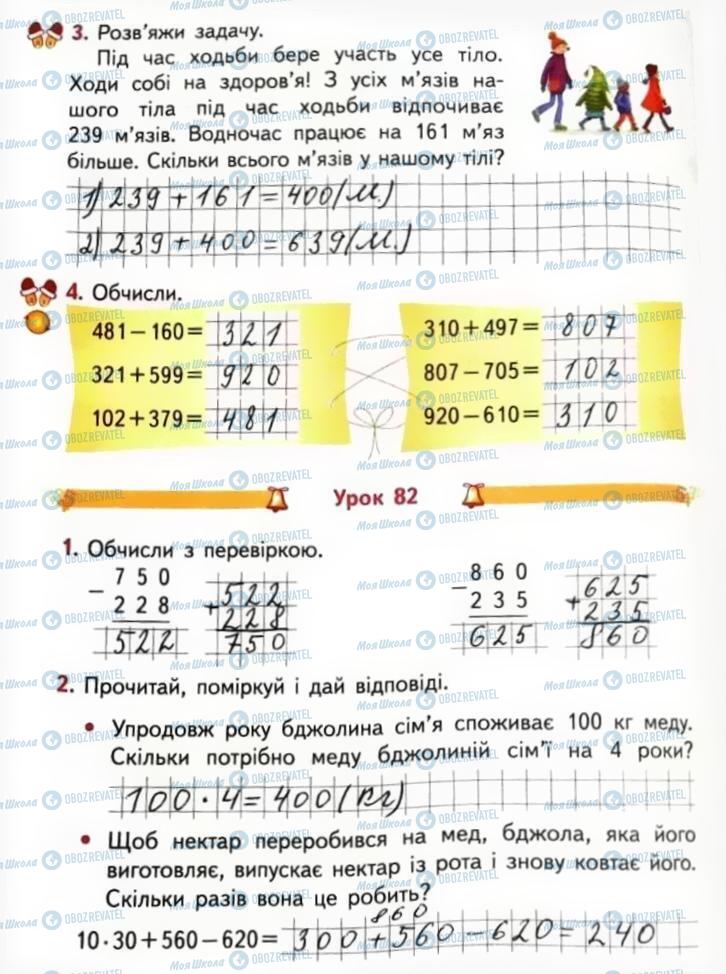 3. Розв'яжи задачу.
Під час ходьби бере участь усе тіло.
Ходи собі на здоров'я! З усіх м'язів на-
шого тіла під час ходьби відпочиває
239 м'язів. Водночас працює на 161 м'яз
більше. Скільки всього м'язів у нашому тілі?
1) 239 + 161 = 400 (м)
2) 239 + 400 = 639 (м.)
4. Обчисли.
481 − 160 = 321
321 + 599 = 920
102 + 379 = 481
310 + 497 = 807
807 − 705 = 102
920 − 610 = 310
Урок 82
1. Обчисли з перевіркою.
− 750
228
522
+ 522
228
750
− 860
235
625
+ 625
235
860
2. Прочитай, поміркуй і дай відповіді.
• Упродовж року бджолина сім'я споживає 100 кг меду.
Скільки потрібно меду бджолиній сім'ї на 4 роки?
100 · 4 = 400 (кг)
• Щоб нектар переробився на мед, бджола, яка його
виготовляє, випускає нектар із рота і знову ковтає його.
Скільки разів вона це робить?
860
10 · 30 + 560 − 620 = 300 + 560 − 620 = 240
Моя Школа OBOZREVATEL